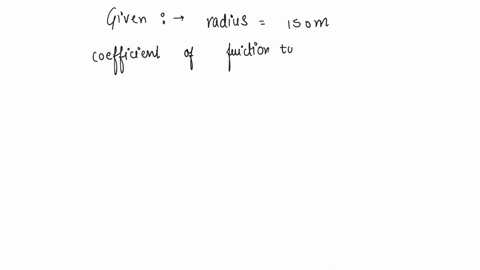 Given :→ radius = 150m
coefficient of friction to